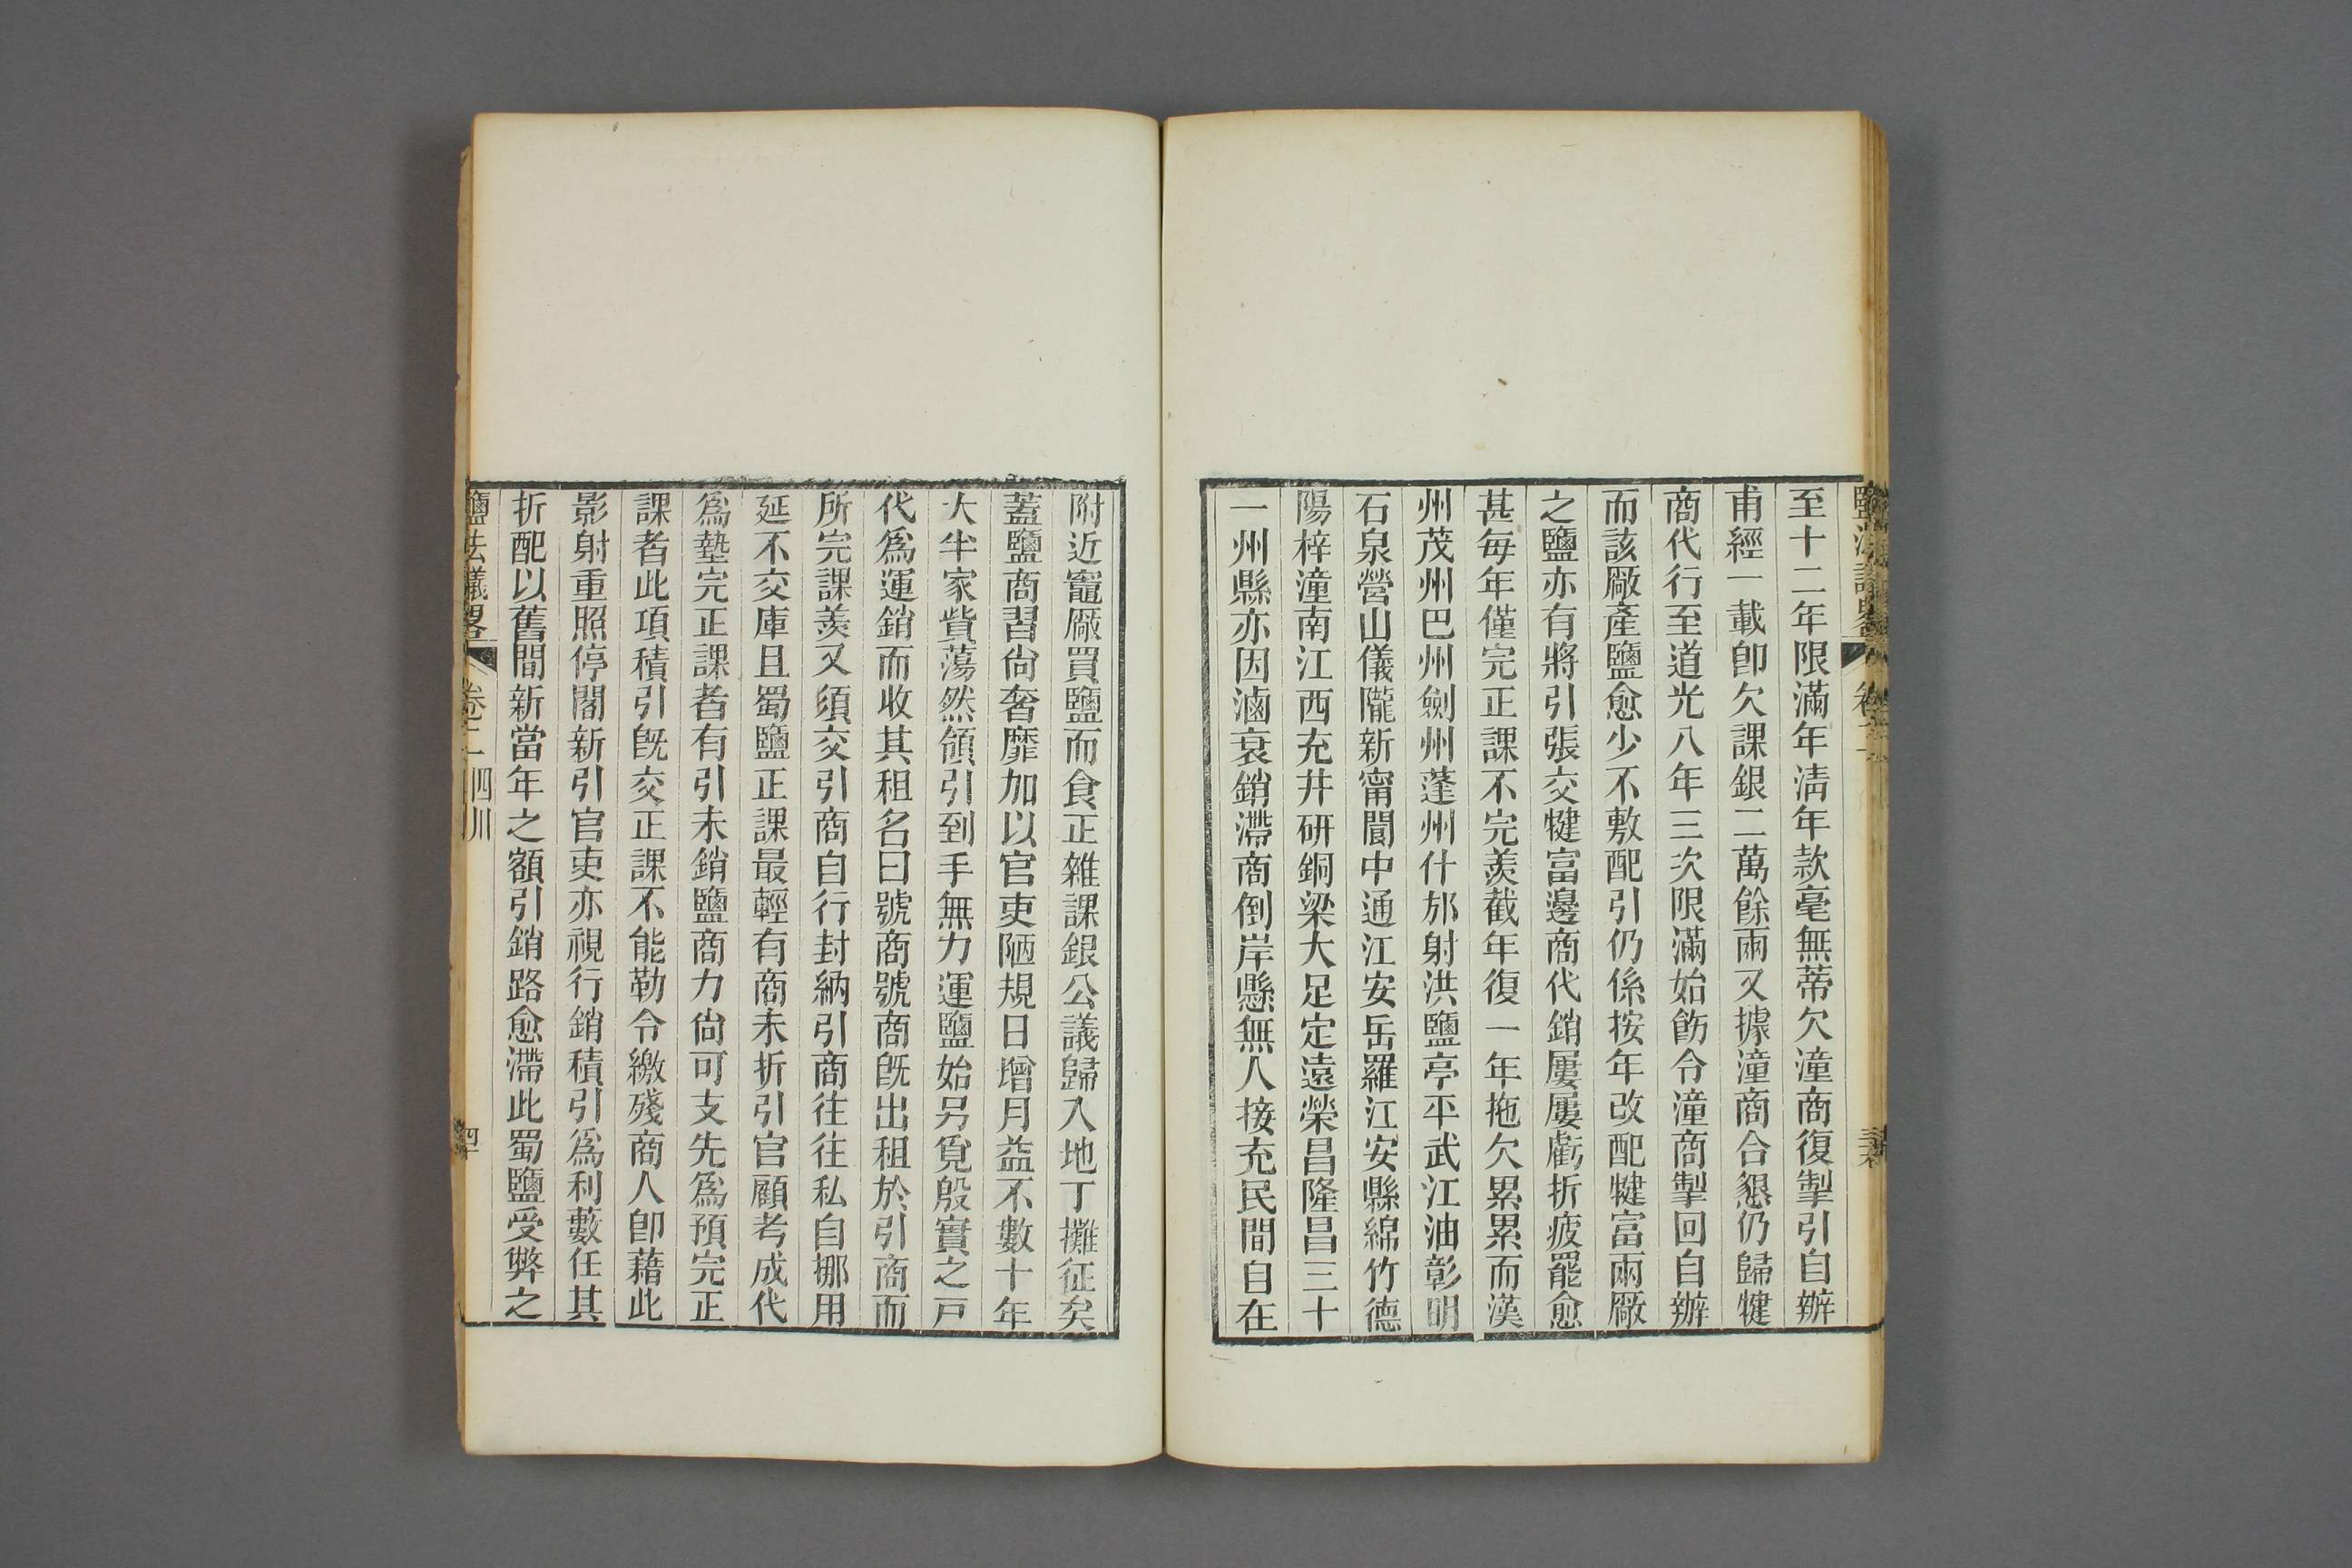 至十二年限滿年淸年款毫無蒂欠潼商復掣引自辦
甫經一載卽欠課銀二萬餘兩又據潼商合懇仍歸犍
商代行至道光八年三次限滿始飭令潼商掣回自辦
而該廠產鹽愈少不敷配引仍係按年改配犍富兩廠
之鹽亦有將引張交犍富邊商代銷屢屢虧折疲罷愈
甚每年僅完正課不完羨截年復一年拖欠累累而漢
州茂州巴州劍州蓬州什邡射洪鹽亭平武江油彰明
石泉營山儀隴新甯閬中通江安岳羅江安縣綿竹德
陽梓潼南江西充井研銅梁大足定遠榮昌隆昌三十
一州縣亦因滷衰銷滯商倒岸懸無人接充民間自在
附近竈廠買鹽而食正雜課銀公議歸入地丁攤征矣
蓋鹽商習尙奢靡加以官吏陋規日增月益不數十年
大半家貲蕩然領引到手無力運鹽始另覓殷實之戸
代爲運銷而收其租名曰號商號商旣出租於引商而
所完課羨又須交引商自行封納引商往往私自挪用
延不交庫且蜀鹽正課最輕有商未折引官顧考成代
爲墊完正課者有引未銷鹽商力尙可支先爲預完正
課者此項積引旣交正課不能勒令繳殘商人卽藉此
影射重照停閣新引官吏亦視行銷積引爲利藪任其
折配以舊間新當年之額引銷路愈滯此蜀鹽受弊之
鹽法議畧 卷二 四川 四十